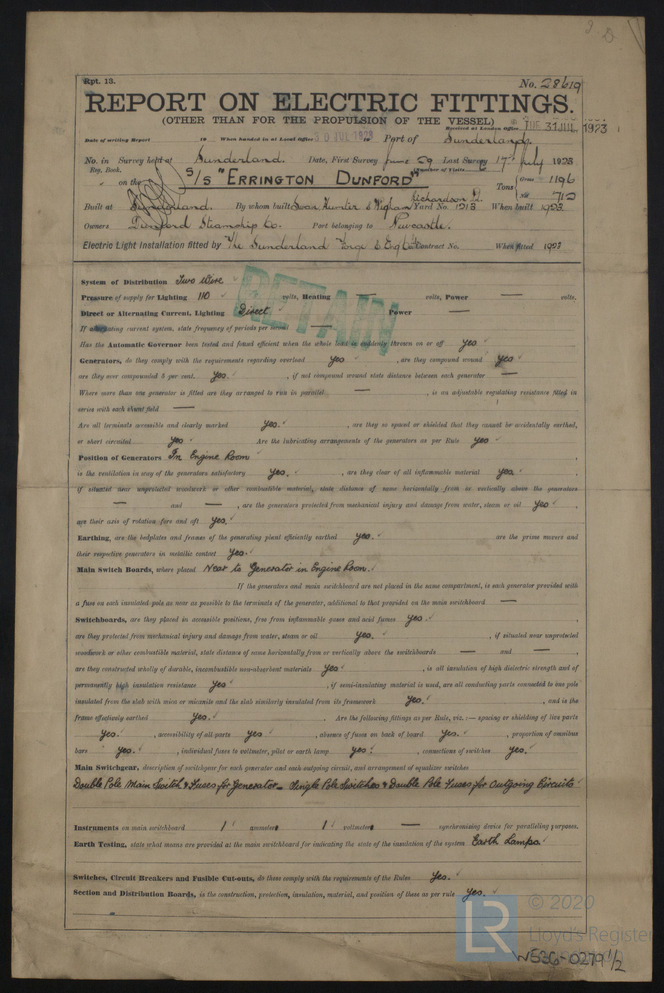 Rpt. 13.
No. 28619
REPORT ON ELECTRIC FITTINGS.
(OTHER THAN FOR THE PROPULSION OF THE VESSEL)
Received at London Office TUE 31 JUL 1923
Date of writing Report 19 When handed in at Local Office 30 JUL 1923 Port of Sunderland.
No. in Survey held at Sunderland. Date, First Survey June 29 Last Survey 17th July 1923
Reg. Book. Number of Visits
on the S/S "ERRINGTON DUNFORD" Tons Gross 1196
Net 712
Built at Sunderland. By whom built Swan Hunter & Wigham Richardson Ld. Yard No. 1213 When built 1923
Owners Dunford Steamship Co. Port belonging to Newcastle.
Electric Light Installation fitted by The Sunderland Forge & Eng Co Contract No. When fitted 1923
RETAIN
System of Distribution Two Wire
Pressure of supply for Lighting 110 volts, Heating — volts, Power — volts.
Direct or Alternating Current, Lighting Direct Power —
If alternating current system, state frequency of periods per second —
Has the Automatic Governor been tested and found efficient when the whole load is suddenly thrown on or off yes
Generators, do they comply with the requirements regarding overload yes , are they compound wound yes
are they over compounded 5 per cent. yes. , if not compound wound state distance between each generator —
Where more than one generator is fitted are they arranged to run in parallel — , is an adjustable regulating resistance fitted in
series with each shunt field —
Are all terminals accessible and clearly marked yes. , are they so spaced or shielded that they cannot be accidentally earthed,
or short circuited yes Are the lubricating arrangements of the generators as per Rule yes
Position of Generators In Engine Room
is the ventilation in way of the generators satisfactory yes. , are they clear of all inflammable material yes.
if situated near unprotected woodwork or other combustible material, state distance of same horizontally from or vertically above the generators
— and — , are the generators protected from mechanical injury and damage from water, steam or oil yes
are their axis of rotation fore and aft yes.
Earthing, are the bedplates and frames of the generating plant efficiently earthed yes. are the prime movers and
their respective generators in metallic contact yes.
Main Switch Boards, where placed Near to Generator in Engine Room.
If the generators and main switchboard are not placed in the same compartment, is each generator provided with
a fuse on each insulated pole as near as possible to the terminals of the generator, additional to that provided on the main switchboard —
Switchboards, are they placed in accessible positions, free from inflammable gases and acid fumes yes
are they protected from mechanical injury and damage from water, steam or oil yes. , if situated near unprotected
woodwork or other combustible material, state distance of same horizontally from or vertically above the switchboards — and —
are they constructed wholly of durable, incombustible non-absorbent materials yes , is all insulation of high dielectric strength and of
permanently high insulation resistance yes , if semi-insulating material is used, are all conducting parts connected to one pole
insulated from the slab with mica or micanite and the slab similarly insulated from its framework yes. , and is the
frame effectively earthed yes. Are the following fittings as per Rule, viz.:— spacing or shielding of live parts
yes. , accessibility of all parts yes , absence of fuses on back of board yes. , proportion of omnibus
bars yes. , individual fuses to voltmeter, pilot or earth lamp yes. , connections of switches yes.
Main Switchgear, description of switchgear for each generator and each outgoing circuit, and arrangement of equalizer switches
Double Pole Main Switch & Fuses for Generator - Single Pole Switches & Double Pole Fuses for Outgoing Circuits
Instruments on main switchboard 1 ammeters 1 voltmeters — synchronising device for paralleling purposes.
Earth Testing, state what means are provided at the main switchboard for indicating the state of the insulation of the system Earth Lamps
Switches, Circuit Breakers and Fusible Cut-outs, do these comply with the requirements of the Rules yes.
Section and Distribution Boards, is the construction, protection, insulation, material, and position of these as per rule yes.
LR
© 2020
Lloyd's Register
W536-0279 1/2